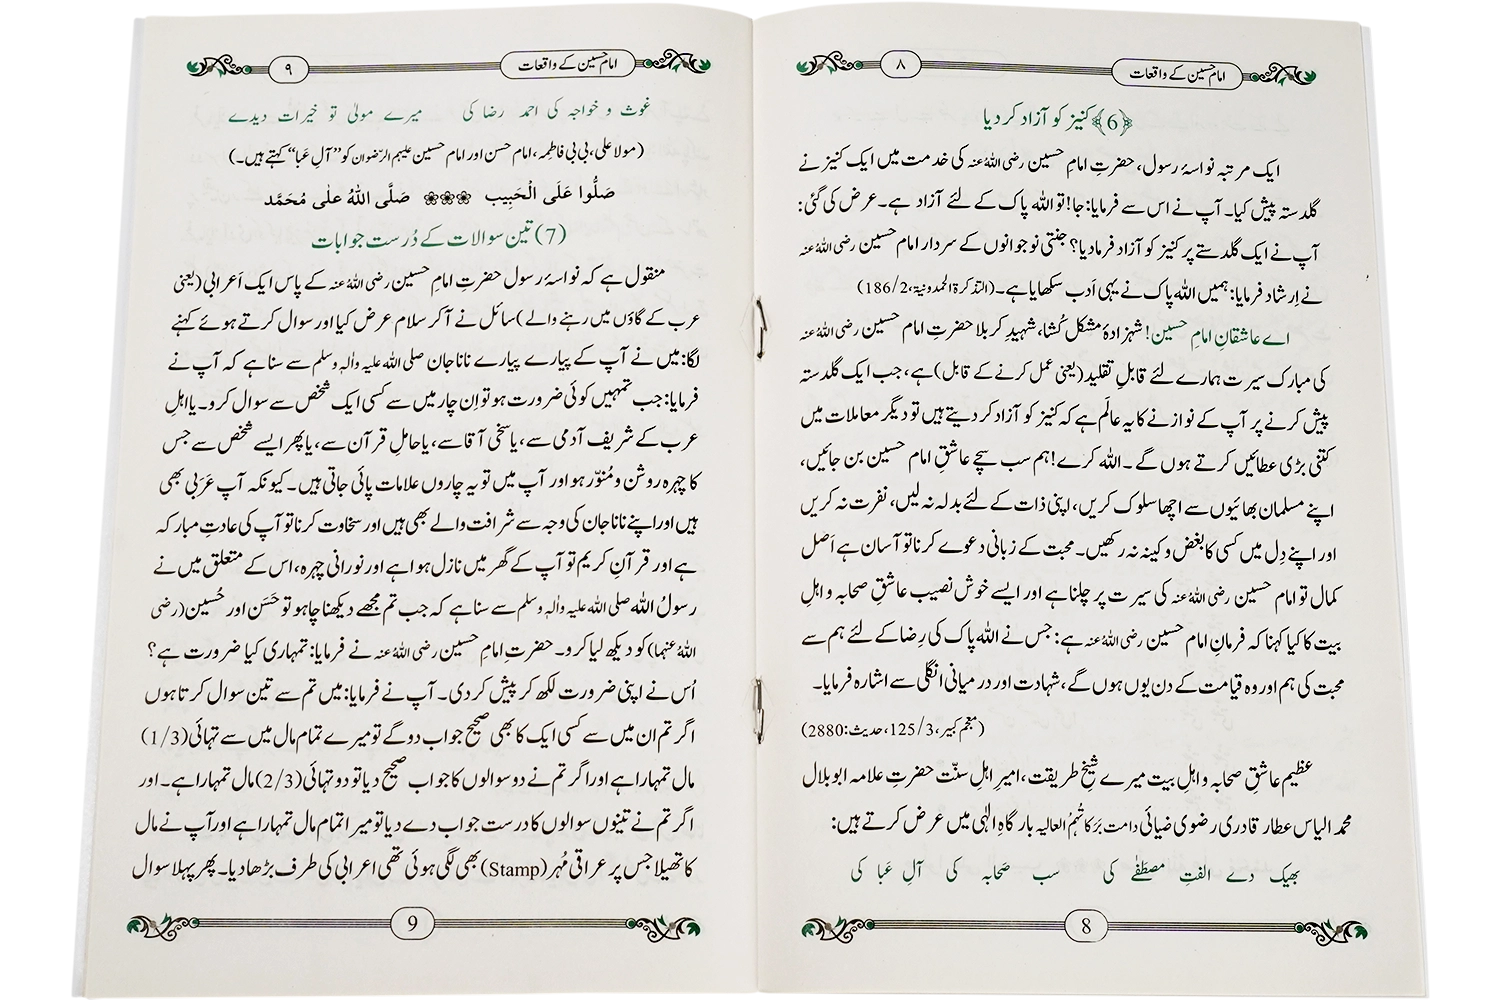 امام حسین کے واقعات
۸
﴿6﴾ کنیز کو آزاد کر دیا
ایک مرتبہ نواسۂ رسول، حضرتِ امامِ حسین رضی اللہُ عنہ کی خدمت میں ایک کنیز نے
گلدستہ پیش کیا۔ آپ نے اس سے فرمایا: جا! تو اللہ پاک کے لئے آزاد ہے۔ عرض کی گئی:
آپ نے ایک گلدستے پر کنیز کو آزاد فرمادیا؟ جنتی نوجوانوں کے سردار امام حسین رضی اللہُ عنہ
نے اِرشاد فرمایا: ہمیں اللہ پاک نے یہی اَدب سکھایا ہے۔ (التذکرۃ الحمدونیۃ، 186/2)
اے عاشقانِ امامِ حسین! شہزادۂ مشکل کُشا، شہیدِ کربلا حضرتِ امام حسین رضی اللہُ عنہ
کی مبارک سیرت ہمارے لئے قابلِ تقلید (یعنی عمل کرنے کے قابل) ہے، جب ایک گلدستہ
پیش کرنے پر آپ کے نوازنے کا یہ عالَم ہے کہ کنیز کو آزاد کر دیتے ہیں تو دیگر معاملات میں
کتنی بڑی عطائیں کرتے ہوں گے۔ اللہ کرے! ہم سب سچے عاشقِ امام حسین بن جائیں،
اپنے مسلمان بھائیوں سے اچھا سلوک کریں، اپنی ذات کے لئے بدلہ نہ لیں، نفرت نہ کریں
اور اپنے دِل میں کسی کا بغض و کینہ نہ رکھیں۔ محبت کے زبانی دعوے کرنا تو آسان ہے اَصل
کمال تو امام حسین رضی اللہُ عنہ کی سیرت پر چلنا ہے اور ایسے خوش نصیب عاشقِ صحابہ و اہلِ
بیت کا کیا کہنا کہ فرمانِ امام حسین رضی اللہُ عنہ ہے: جس نے اللہ پاک کی رِضا کے لئے ہم سے
محبت کی ہم اور وہ قیامت کے دن یوں ہوں گے، شہادت اور درمیانی انگلی سے اشارہ فرمایا۔
(معجم کبیر، 125/3، حدیث: 2880)
عظیم عاشقِ صحابہ و اہلِ بیت میرے شیخِ طریقت، امیرِ اہلِ سنّت حضرتِ علامہ ابو بلال
محمد الیاس عطار قادری رضوی ضیائی دامت بَرَکاتُہُم العالیہ بارگاہِ الٰہی میں عرض کرتے ہیں:
بھیک دے الفتِ مصطَفٰے کی سب صَحابہ کی آلِ عَبا کی
8
امام حسین کے واقعات
۹
غوث و خواجہ کی احمد رضا کی میرے مولیٰ تو خیرات دیدے
(مولا علی، بی بی فاطِمہ، امام حسن اور امام حسین علیہم الرّضوان کو ”آلِ عَبا“ کہتے ہیں۔)
صَلُّوا عَلَی الْحَبِیب ❀❀❀ صَلَّی اللہُ علٰی مُحَمَّد
(7) تین سوالات کے دُرست جوابات
منقول ہے کہ نواسۂ رسول حضرتِ امامِ حسین رضی اللہُ عنہ کے پاس ایک اَعرابی (یعنی
عرب کے گاؤں میں رہنے والے) سائل نے آکر سلام عرض کیا اور سوال کرتے ہوئے کہنے
لگا: میں نے آپ کے پیارے پیارے نانا جان صلی اللہ علیہ واٰلہٖ وسلم سے سنا ہے کہ آپ نے
فرمایا: جب تمہیں کوئی ضرورت ہو تو اِن چار میں سے کسی ایک شخص سے سوال کرو۔ یا اہلِ
عرب کے شریف آدمی سے، یا سخی آقا سے، یا حاملِ قرآن سے، یا پھر ایسے شخص سے جس
کا چہرہ روشن و مُنوّر ہو اور آپ میں تو یہ چاروں علامات پائی جاتی ہیں۔ کیونکہ آپ عَرَبی بھی
ہیں اور اپنے نانا جان کی وجہ سے شرافت والے بھی ہیں اور سخاوت کرنا تو آپ کی عادتِ مبارکہ
ہے اور قرآنِ کریم تو آپ کے گھر میں نازل ہوا ہے اور نورانی چہرہ، اس کے متعلق میں نے
رسولُ اللہ صلی اللہ علیہ واٰلہٖ وسلم سے سنا ہے کہ جب تم مجھے دیکھنا چاہو تو حَسَن اور حُسین (رضی
اللہُ عنہما) کو دیکھ لیا کرو۔ حضرتِ امامِ حسین رضی اللہُ عنہ نے فرمایا: تمہاری کیا ضرورت ہے؟
اُس نے اپنی ضرورت لکھ کر پیش کر دی۔ آپ نے فرمایا: میں تم سے تین سوال کرتا ہوں
اگر تم ان میں سے کسی ایک کا بھی صحیح جواب دو گے تو میرے تمام مال میں سے تہائی (1/3)
مال تمہارا ہے اور اگر تم نے دو سوالوں کا جواب صحیح دیا تو دو تہائی (2/3) مال تمہارا ہے۔ اور
اگر تم نے تینوں سوالوں کا درست جواب دے دیا تو میرا تمام مال تمہارا ہے اور آپ نے مال
کا تھیلا جس پر عراقی مُہر (Stamp) بھی لگی ہوئی تھی اعرابی کی طرف بڑھا دیا۔ پھر پہلا سوال
9